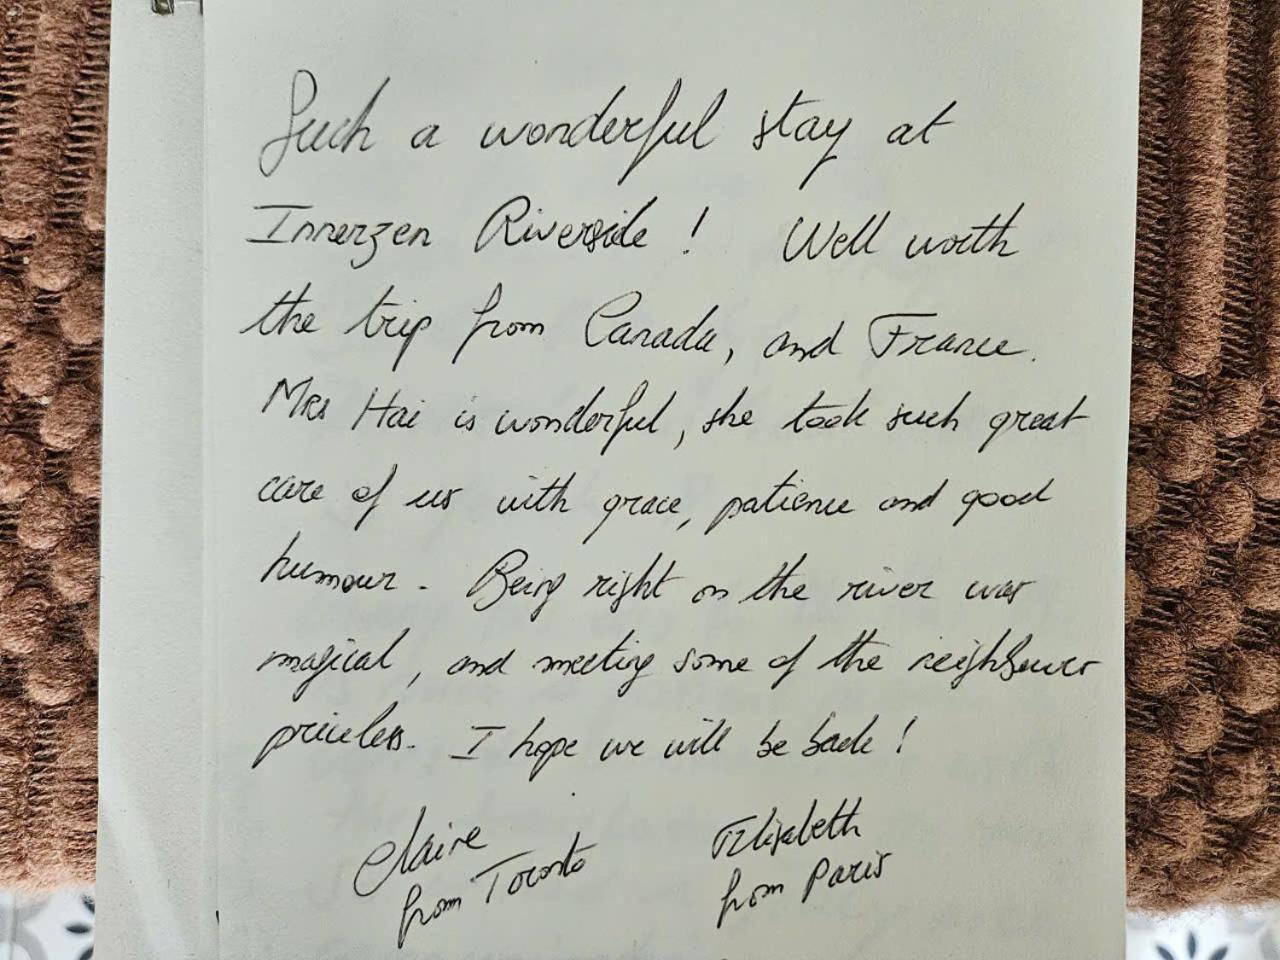 Such a wonderful stay at
Innerzen Riverside ! Well worth
the trip from Canada, and France.
Mrs Hai is wonderful, she took such great
care of us with grace, patience and good
humour. Being right on the river was
magical, and meeting some of the neighbours
priceless. I hope we will be back !
Claire
from Toronto
Elizabeth
from Paris